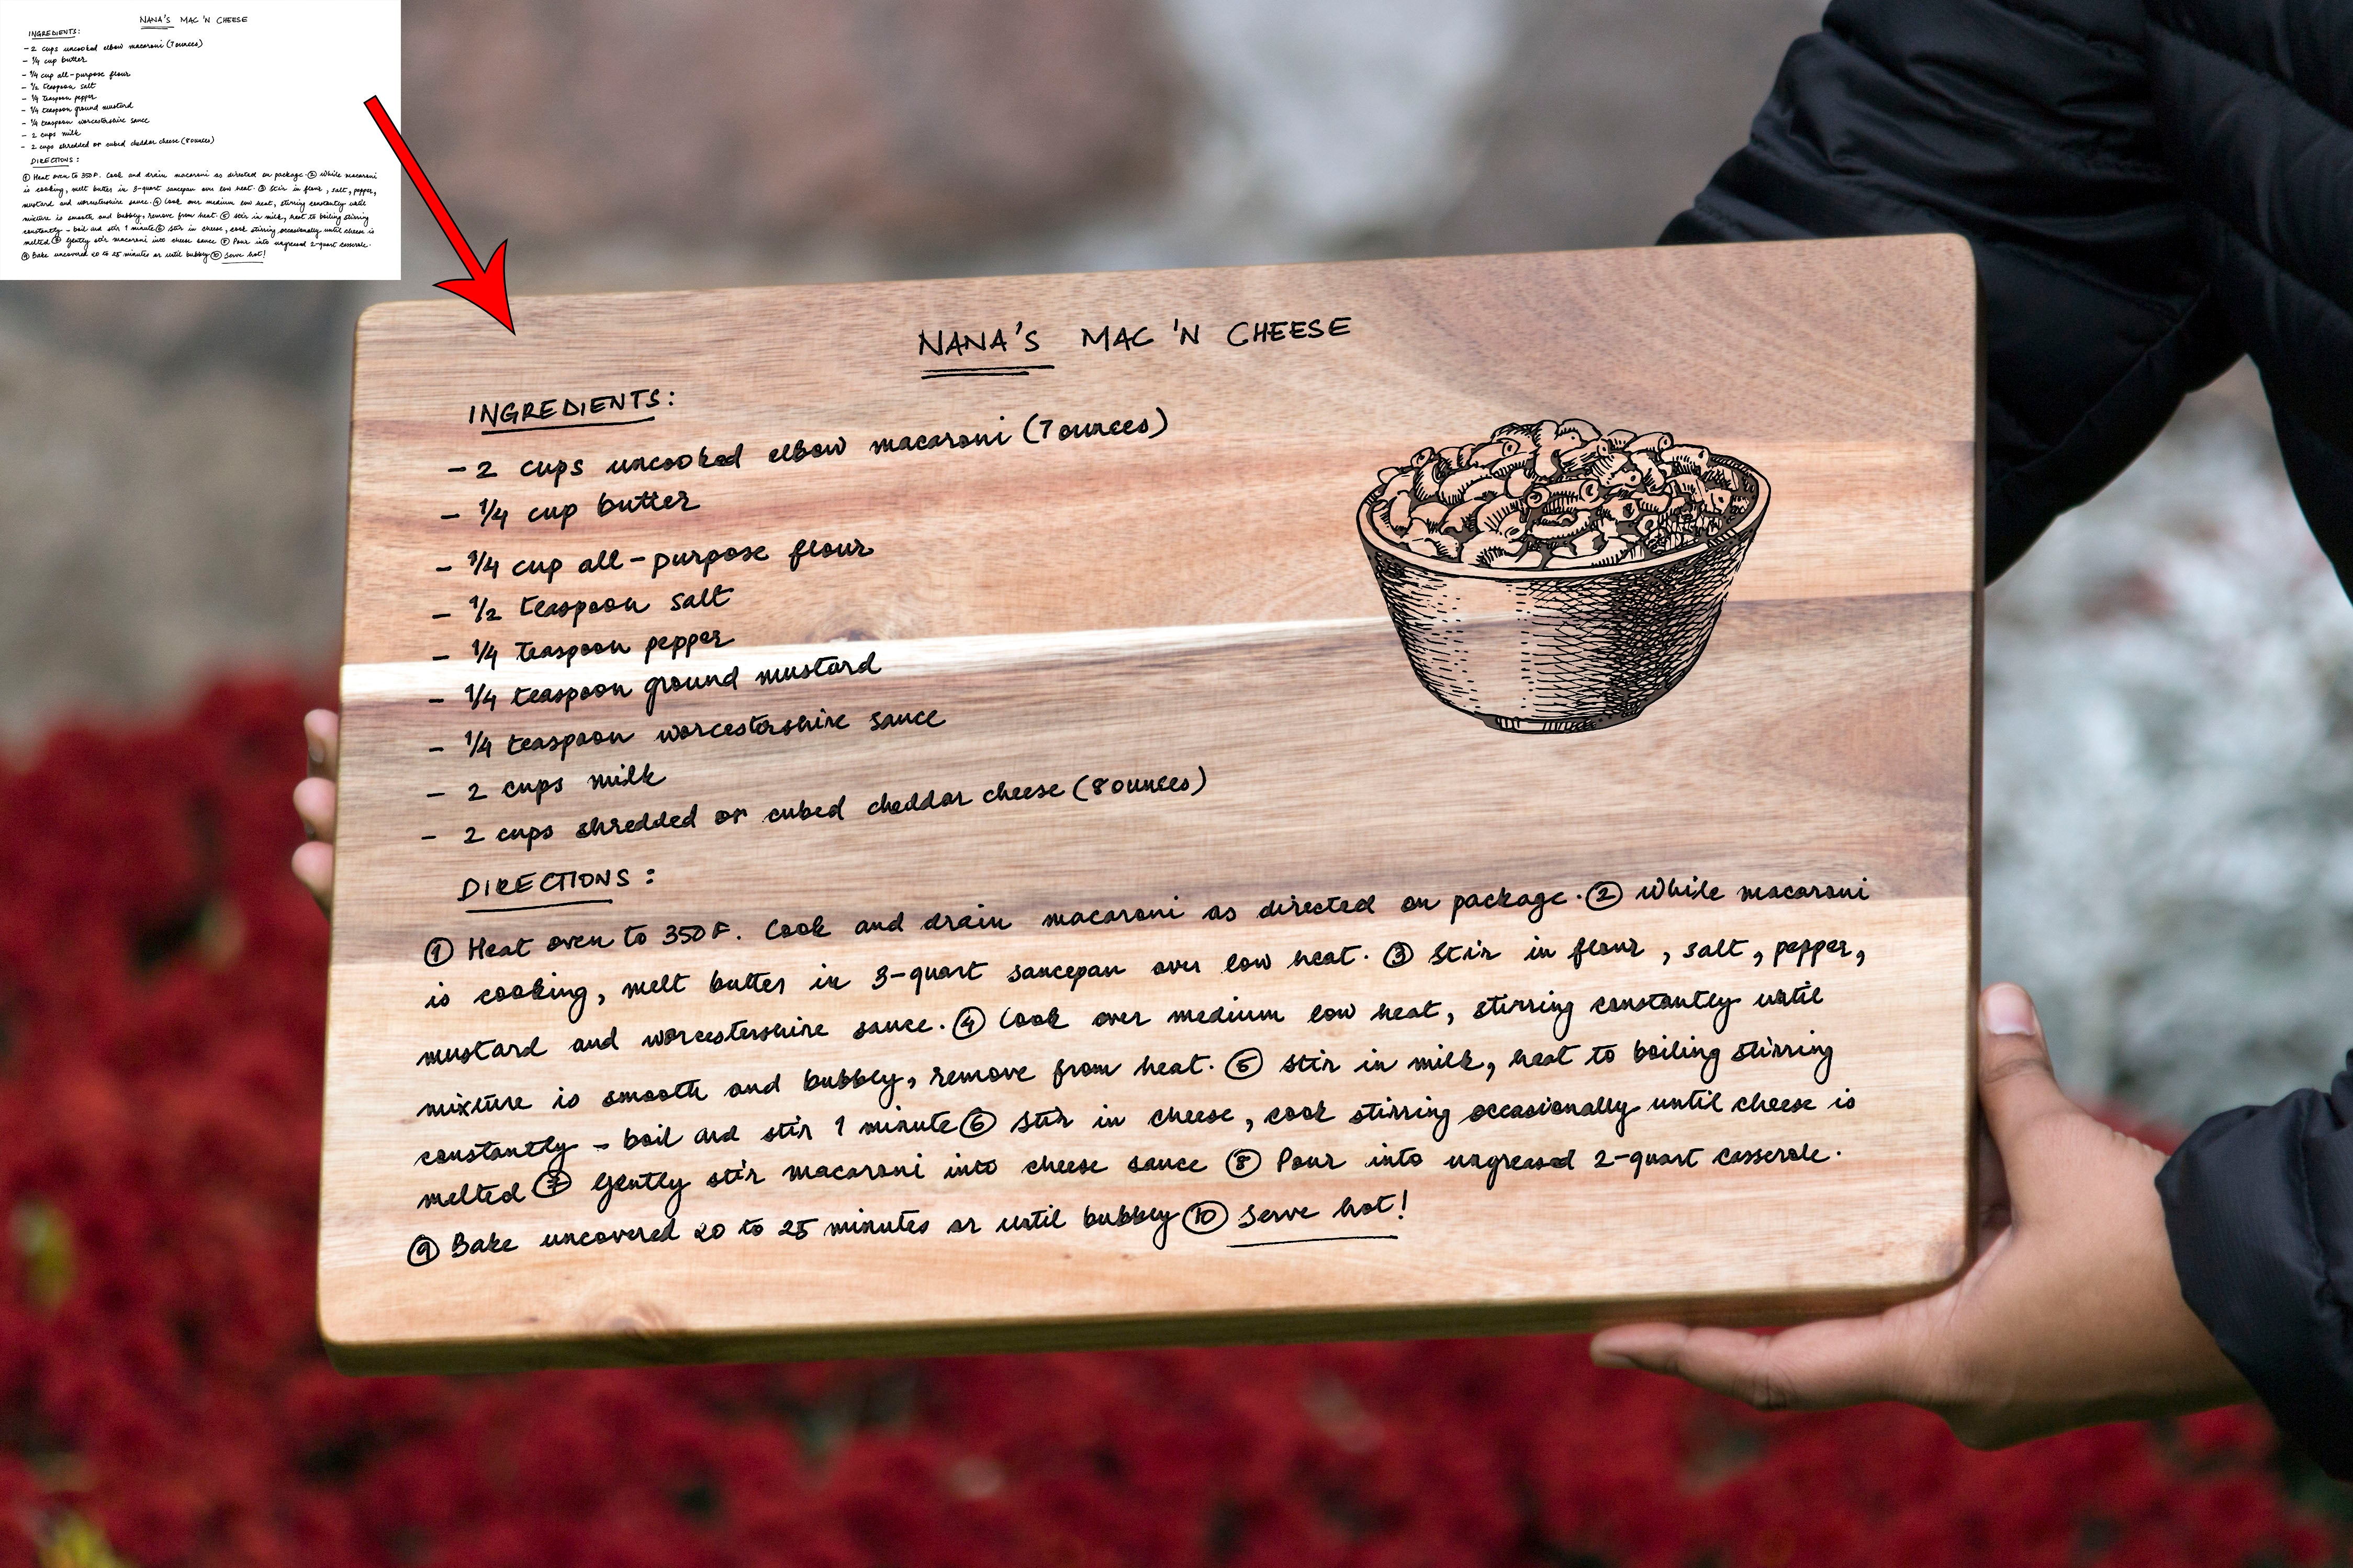 NANA'S MAC 'N CHEESE
INGREDIENTS:
- 2 cups uncooked elbow macaroni (7 ounces)
- 1/4 cup butter
- 1/4 cup all-purpose flour
- 1/2 teaspoon salt
- 1/4 teaspoon pepper
- 1/4 teaspoon ground mustard
- 1/4 teaspoon worcestershire sauce
- 2 cups milk
- 2 cups shredded or cubed cheddar cheese (8 ounces)
DIRECTIONS:
① Heat oven to 350 F. Cook and drain macaroni as directed on package. ② While macaroni
is cooking, melt butter in 3-quart saucepan over low heat. ③ Stir in flour, salt, pepper,
mustard and worcestershire sauce. ④ Cook over medium low heat, stirring constantly until
mixture is smooth and bubbly, remove from heat. ⑤ stir in milk, heat to boiling stirring
constantly - boil and stir 1 minute ⑥ Stir in cheese, cook stirring occasionally until cheese is
melted ⑦ Gently stir macaroni into cheese sauce ⑧ Pour into ungreased 2-quart casserole.
⑨ Bake uncovered 20 to 25 minutes or until bubbly ⑩ Serve hot!
NANA'S MAC 'N CHEESE
INGREDIENTS:
- 2 cups uncooked elbow macaroni (7 ounces)
- 1/4 cup butter
- 1/4 cup all-purpose flour
- 1/2 teaspoon salt
- 1/4 teaspoon pepper
- 1/4 teaspoon ground mustard
- 1/4 teaspoon worcestershire sauce
- 2 cups milk
- 2 cups shredded or cubed cheddar cheese (8 ounces)
DIRECTIONS:
① Heat oven to 350 F. Cook and drain macaroni as directed on package. ② While macaroni
is cooking, melt butter in 3-quart saucepan over low heat. ③ Stir in flour, salt, pepper,
mustard and worcestershire sauce. ④ Cook over medium low heat, stirring constantly until
mixture is smooth and bubbly, remove from heat. ⑤ stir in milk, heat to boiling stirring
constantly - boil and stir 1 minute ⑥ Stir in cheese, cook stirring occasionally until cheese is
melted ⑦ Gently stir macaroni into cheese sauce ⑧ Pour into ungreased 2-quart casserole.
⑨ Bake uncovered 20 to 25 minutes or until bubbly ⑩ Serve hot!